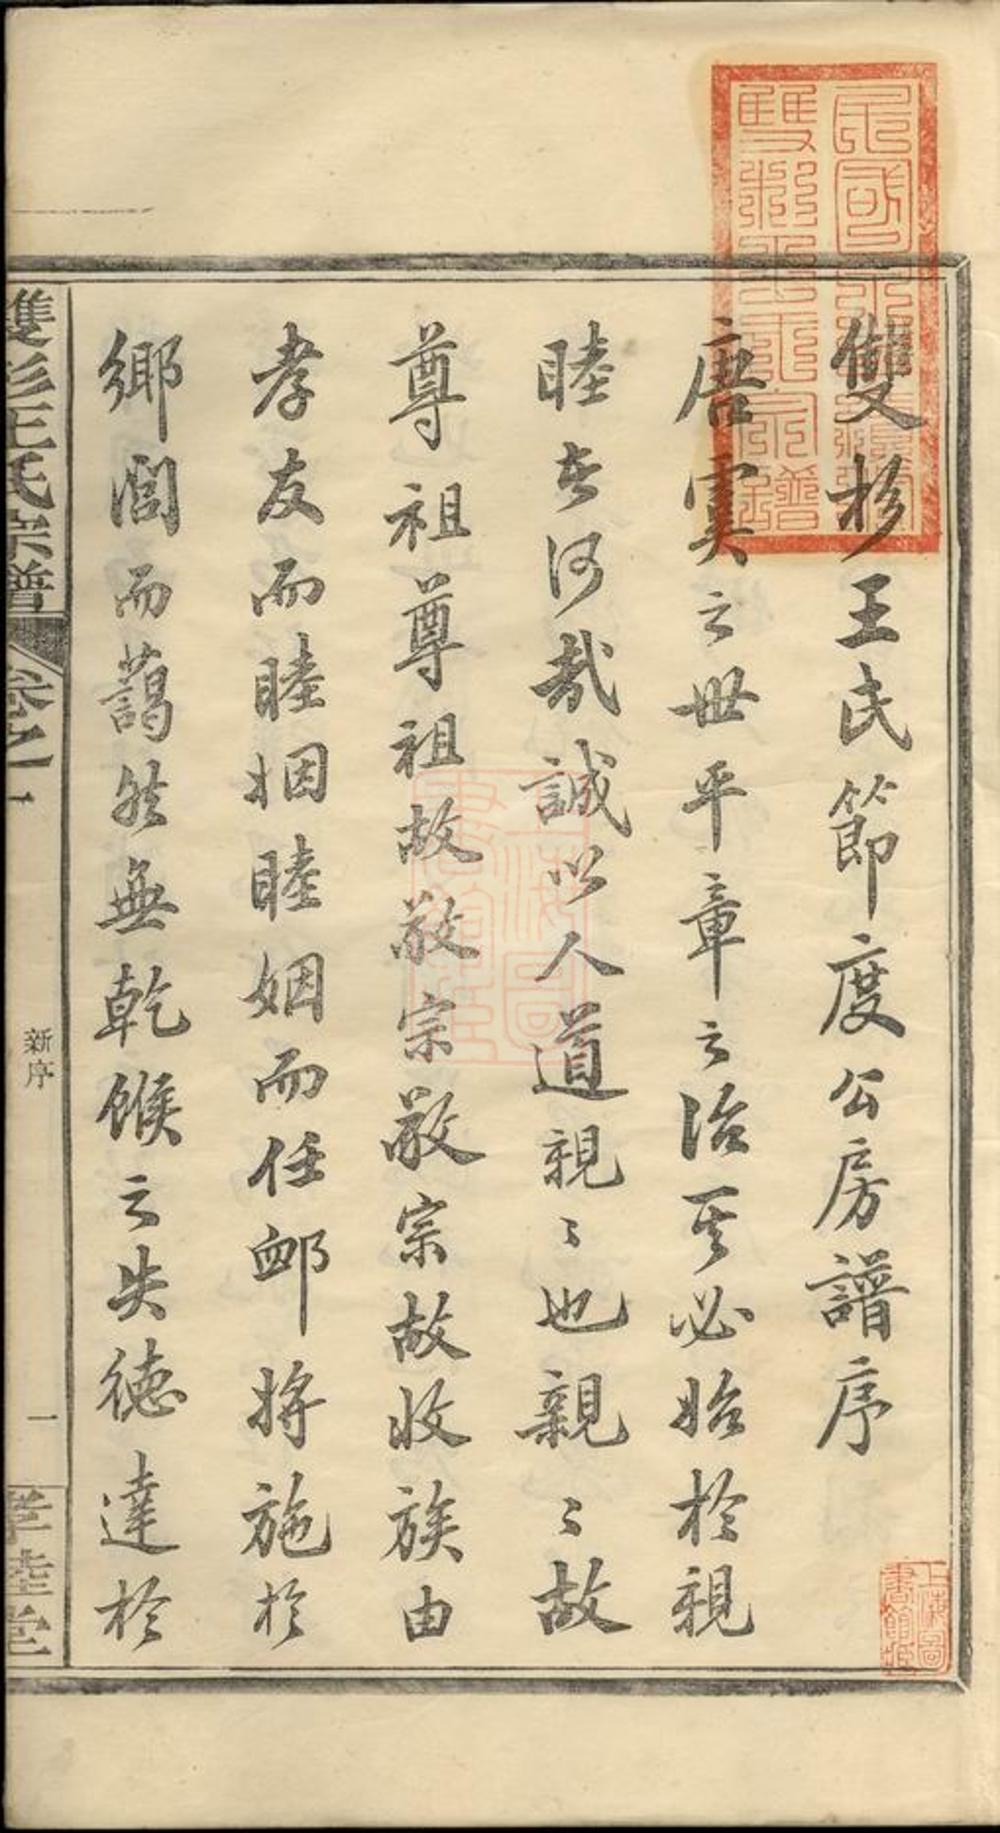 雙杉王氏節度公房譜序
唐虞之世平章之治其必始於親
睦者何哉誠以人道親〻也親〻故
尊祖尊祖故敬宗敬宗故收族由
孝友而睦婣睦姻而任卹將施於
鄉閭而藹然無乾餱之失德達於
雙杉王氏宗譜
卷之一
新序
一
孝睦堂
上海圖書館藏